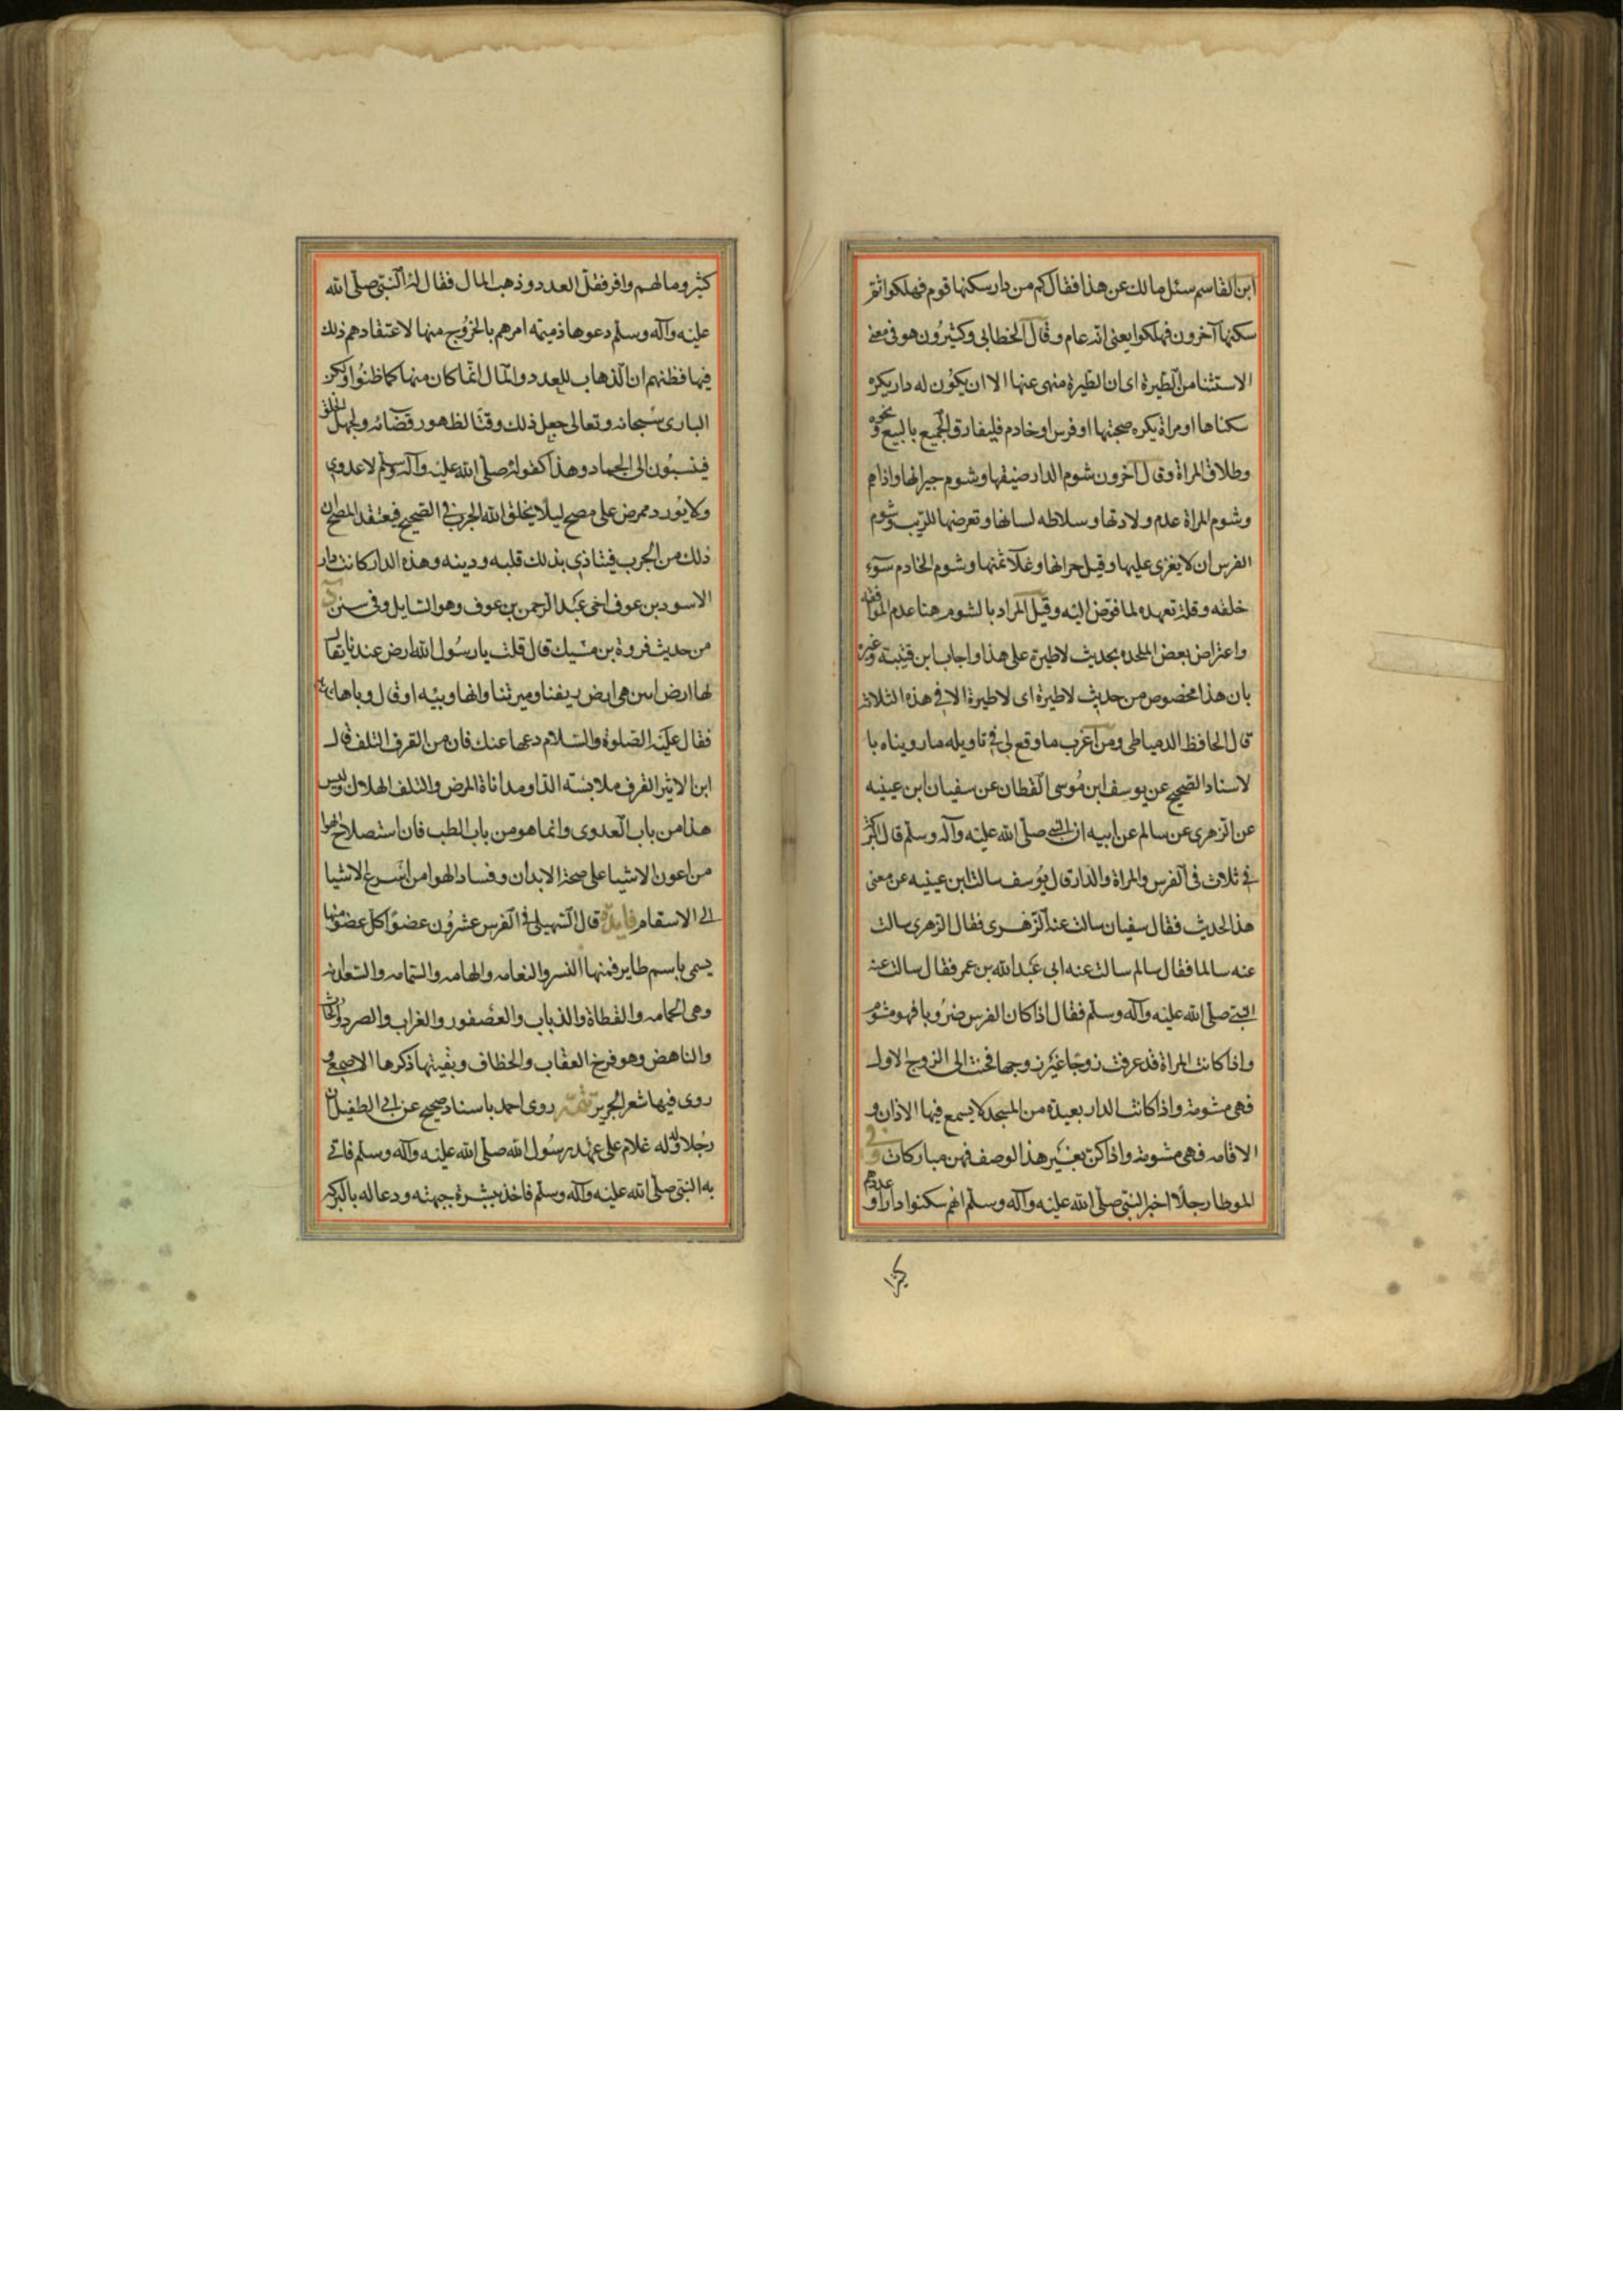 ابن القاسم سئل مالك عن هذا فقال كم من دار سكنها قوم فهلكوا ثم
سكنها آخرون فهلكوا يعنى انه عام وقال الخطابى وكثيرون هو فى معنى
الاستثنا من الطيرة اى ان الطيرة منهى عنها الا ان يكون له دار يكره
سكناها او مراة يكره صحبتها او فرس او خادم فليفارق الجميع بالبيع ونحوه
وطلاق المراة وقال آخرون شوم الدار ضيقها وشوم جيرانها واذاهم
وشوم المراة عدم ولادتها وسلاطه لسانها وتعرضها للريب وشوم
الفرس ان لا يغزى عليها وقيل حرانها وغلآ ثمنها وشوم الخادم سوء
خلقه وقلة تعهده لما فوض اليه وقيل المراد بالشوم هنا عدم الموافقه
واعتراض بعض الملحده بحديث لاطيرة على هذا واجاب ابن قتيبته وغيره
بان هذا مخصوص من حديث لاطيرة اى لاطيرة الا فى هذه الثلاثة
قال الحافظ الدمياطى ومن آغرب ما وقع لى فى تاويله ما رويناه با
لاسناد الصحيح عن يوسف ابن موسى القطان عن سفيان ابن عيينه
عن الزهرى عن سالم عن ابيه ان النبى صلى الله عليه وآله وسلم قال البركة
فى ثلاث فى الفرس والمراة والدار قال يوسف سالت ابن عيينه عن معنى
هذا الحديث فقال سفيان سالت عنه الزهرى فقال الزهرى سالت
عنه سالما فقال سالم سالت عنه ابى عبد الله بن عمر فقال سالت عنه
النبى صلى الله عليه وآله وسلم فقال اذا كان الفرس ضروبا فهو مشوم
واذا كانت المراة قد عرفت زوجا غير زوجها فحنت الى الزوج الاول
فهى مشومة واذا كانت الدار بعيدة من المسجد لا يسمع فيها الاذان و
الاقامه فهى مشومة واذا كن بغير هذا الوصف فهن مباركات وفى
الموطا رجلا اخبر النبى صلى الله عليه وآله وسلم انهم سكنوا دارا وعددهم
كثير ومالهم وافر فقل العدد وذهب المال فقال له النبى صلى الله
عليه وآله وسلم دعوها ذميمه امرهم بالخروج منها لاعتقادهم ذلك
فيها فظنهم ان الذهاب للعدد والمال انما كان منها كما ظنوا ولكن
البارى سبحانه وتعالى جعل ذلك وقتا لظهور قضائه ولجهل الخلق
فينسبون الى الجماد وهذا كقوله صلى الله عليه وآله وسلم لا عدوى
ولا يورد ممرض على مصح ليلا يخلق الله الجرب فى الصحيح فيعتقد المصح ان
ذلك من الجرب فيتاذى بذلك قلبه ودينه وهذه الدار كانت دار
الاسود بن عوف اخى عبد الرحمن بن عوف وهو السايل وفى سنن د
من حديث فروة بن مسيك قال قلت يا رسول الله ارض عندنا يقال
لها ارض ابين هى ارض ريفنا وميرتنا وانها وبيه او قال وباها
فقال عليه الصلوة والسلام دعها عنك فان من القرف التلف قال
ابن الاثير القرف ملابسته الدا ومداناة المرض والتلف الهلاك وليس
هذا من باب العدوى وانما هو من باب الطب فان استصلاح الهوا
من اعون الاشيا على صحة الابدان وفساد الهوا من اسرع الاشيا
الى الاسقام فايدة قال السهيلى فى الفرس عشرون عضوا كل عضو منها
يسمى باسم طاير فمنها النسر والنعامه والهامه والسمامه والسعدانه
وهى الحمامه والقطاة والذباب والعصفور والغراب والصرد
والناهض وهو فرخ العقاب والخطاف وبقيتها ذكرها الاصمعى و
روى فيها شعر الجرير تتمة روى احمد باسناد صحيح عن ابى الطفيل ان
رجلا ولد له غلام على عهد رسول الله صلى الله عليه وآله وسلم فاتى
به النبى صلى الله عليه وآله وسلم فاخذ ببشرة جبهته ودعا له بالبركه